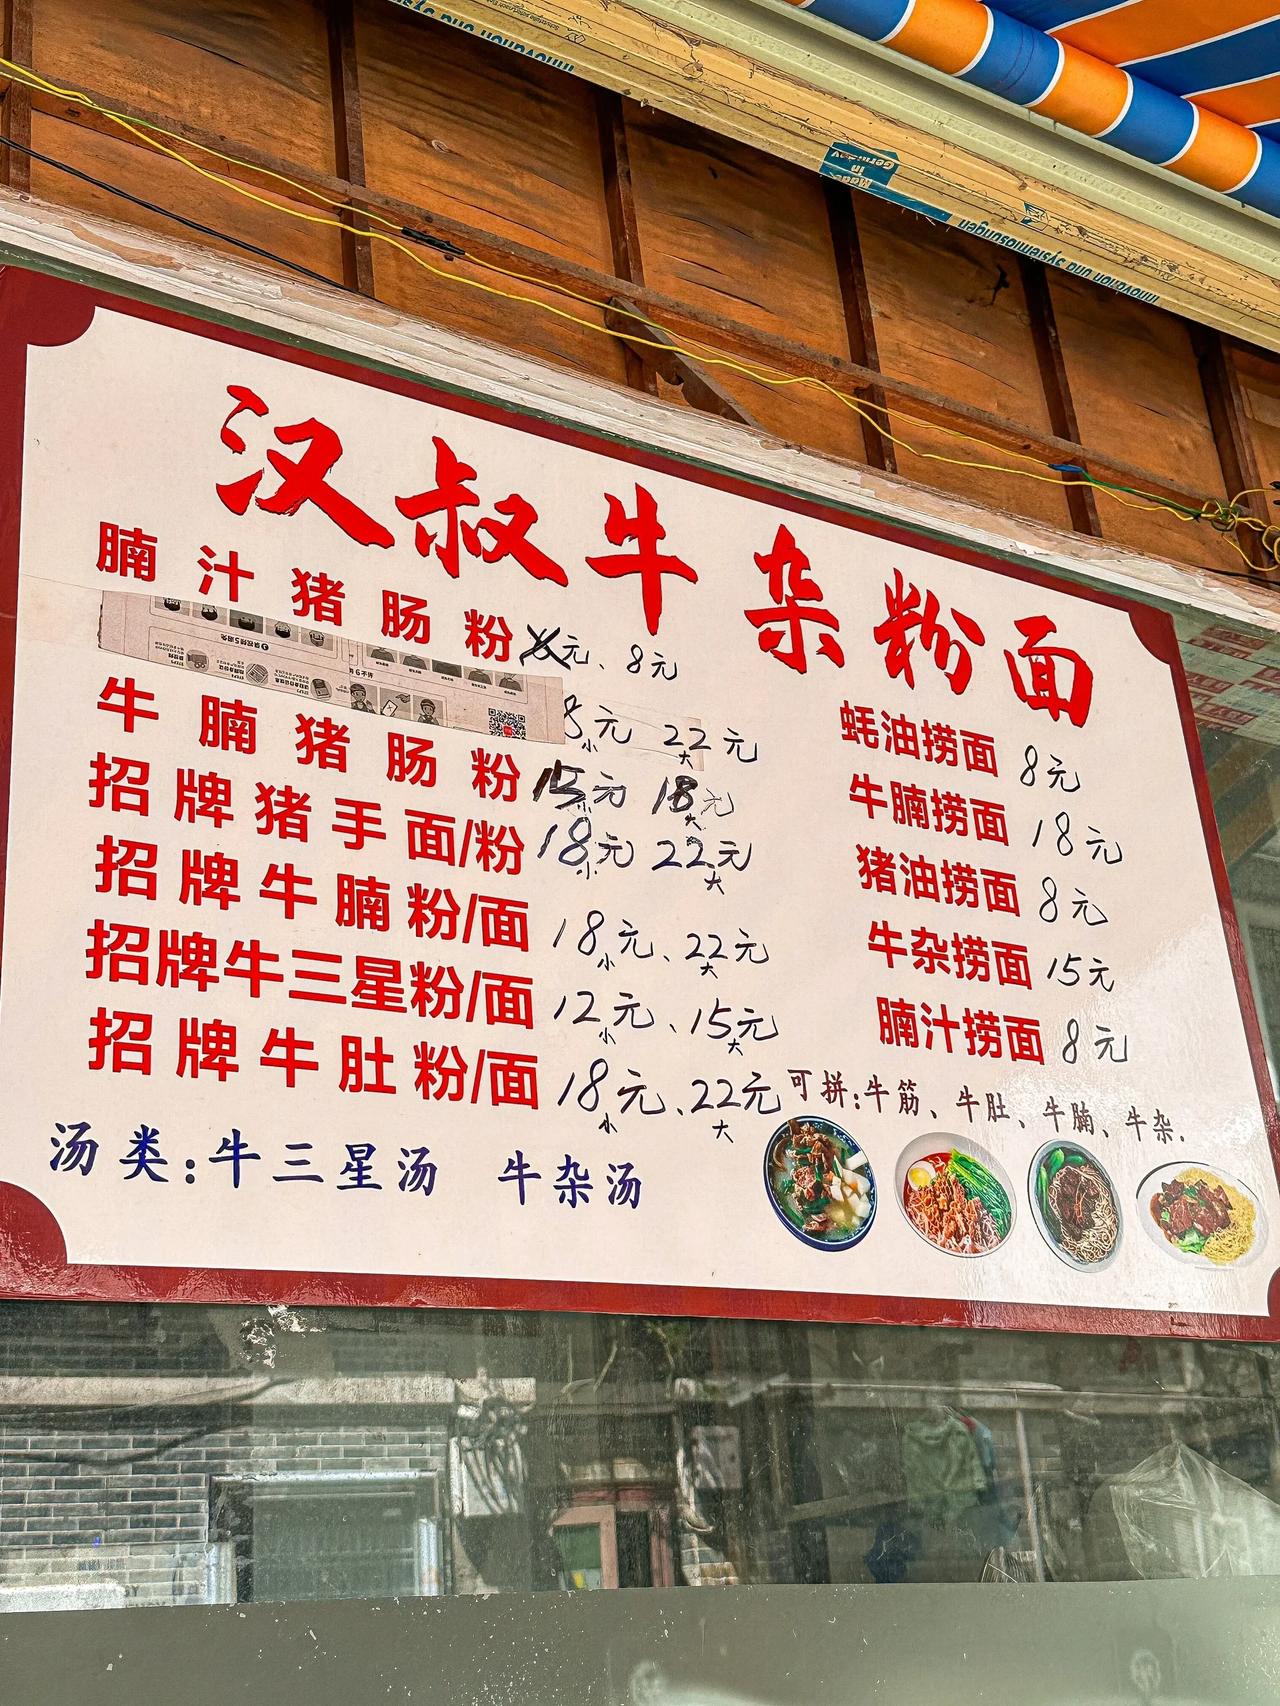 innovation und sys
Made
in
Germany
innovation und Systemlösungen
汉叔牛杂粉面
腩汁猪肠粉 元、8元
8元小 22元大
牛腩猪肠粉 15元小 18元大
招牌猪手面/粉 18元小 22元大
招牌牛腩粉/面 18元小、22元大
招牌牛三星粉/面 12元小、15元大
招牌牛肚粉/面 18元小、22元大
汤类:牛三星汤 牛杂汤
蚝油捞面 8元
牛腩捞面 18元
猪油捞面 8元
牛杂捞面 15元
腩汁捞面 8元
可拼:牛筋、牛肚、牛腩、牛杂.